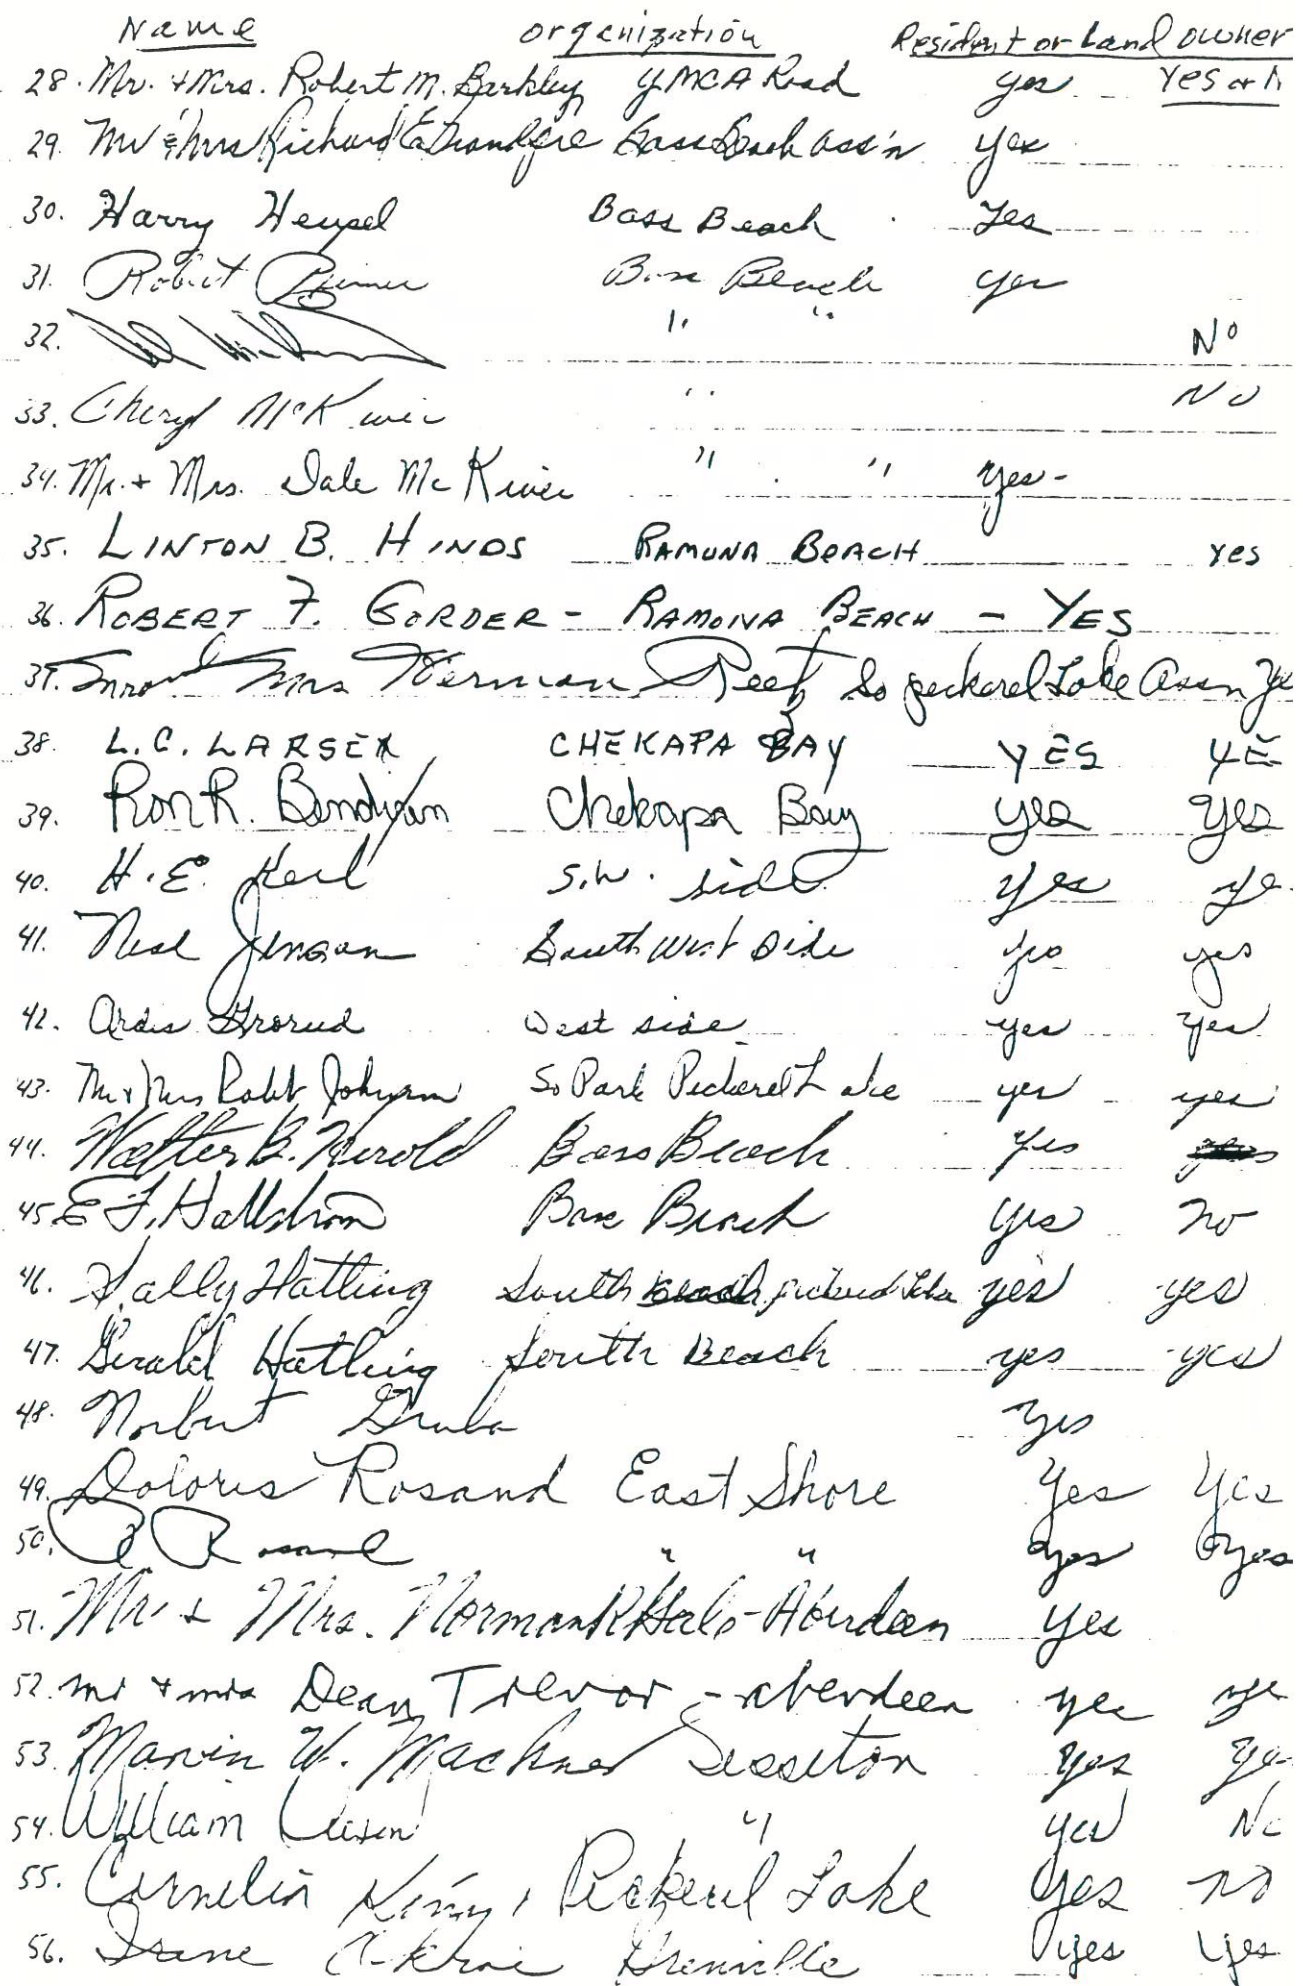 Name organization Resident or Land owner
Yes or N
28. Mr. + Mrs. Robert M. Barkley YMCA Road yes
29. Mr & Mrs Richard Bass Beach ass'n yes
30. Harry Heupel Bass Beach Yes
31. Robert Bass Beach yes
32. " " No
33. Cheryl McKiver " No
34. Mr. + Mrs. Dale McKiver " " Yes -
35. LINTON B. HINDS RAMONA BEACH Yes
36. ROBERT F. GORDER - RAMONA BEACH - YES
37. Mr and Mrs Herman So pickerel Lake Assn Ye
38. L.C. LARSEN CHEKAPA BAY YES YE
39. Ron R. Chekapa Bay yes yes
40. H.E. Keil S.W. side yes ye
41. Jenson South West Side yes
42. Ardis Grorud West side yes yes
43. Mr + Mrs Robt Johnson So Park Pickerel Lake yes yes
44. Walter B. Herold Bass Beach yes
45. E F. Hallstrom Bass Beach yes no
46. Sally Hatling South Pickerel Lake yes yes
47. Gerald Hatling South Beach yes yes
48. Norbert Yes
49. Doloris Rosand East Shore Yes Yes
50. Rosand " " yes yes
51. Mr. + Mrs. Norman R - Aberdeen yes
52. mr + mrs Dean Trevor - aberdeen yes ye
53. Marvin W. Mackner Sisseton yes ye
54. William " yes No
55. Cornelia King, Pickerel Lake Yes no
56. Irene Grenville yes yes